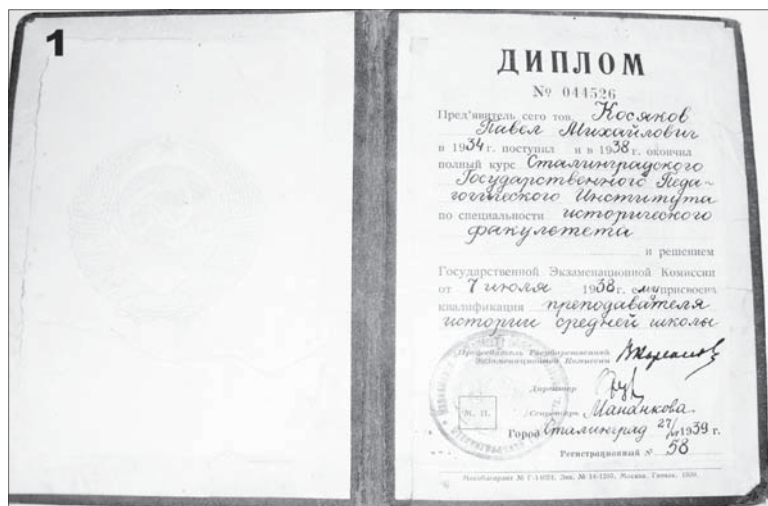 1
ДИПЛОМ
№ 044526
Пред'явитель сего тов. Косяков
Павел Михайлович
в 1934 г. поступил и в 1938 г. окончил
полный курс Сталинградского
Государственного Педа-
гогического Института
по специальности исторического
факультета
и решением
Государственной Экзаменационной Комиссии
от 7 июля 1938 г. ему присвоена
квалификация преподавателя
истории средней школы
Председатель Государственной
Экзаменационной Комиссии
Директор
М. П.
Секретарь Мананкова
Город Сталинград 27/ 1939 г.
Регистрационный № 58